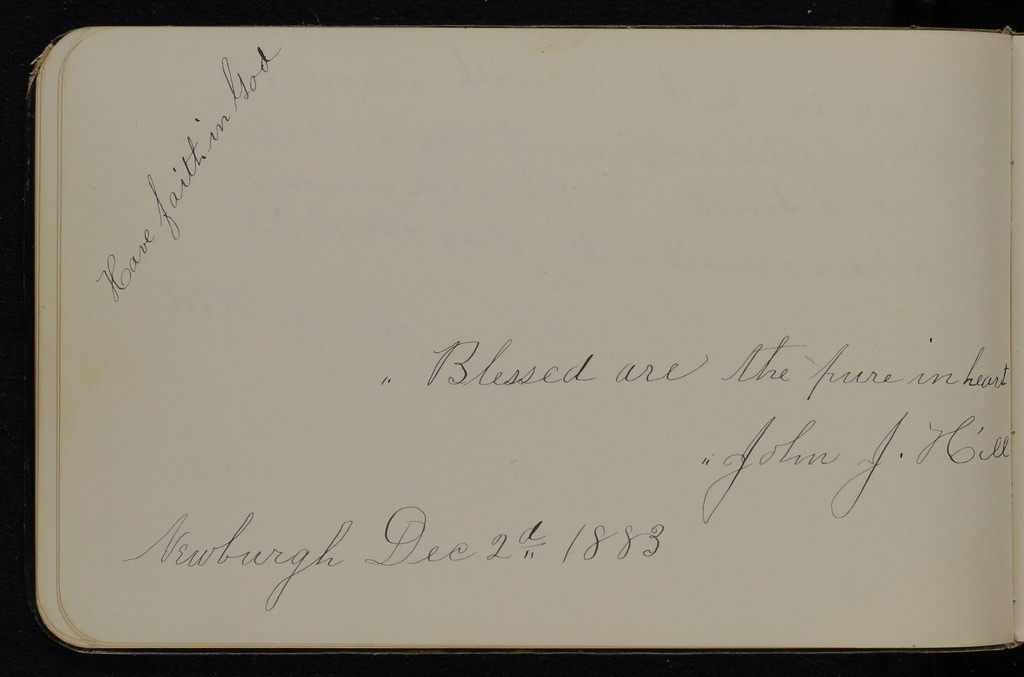 Have faith in God
" Blessed are the pure in heart
" John J. Hill
Newburgh Dec 2d 1883